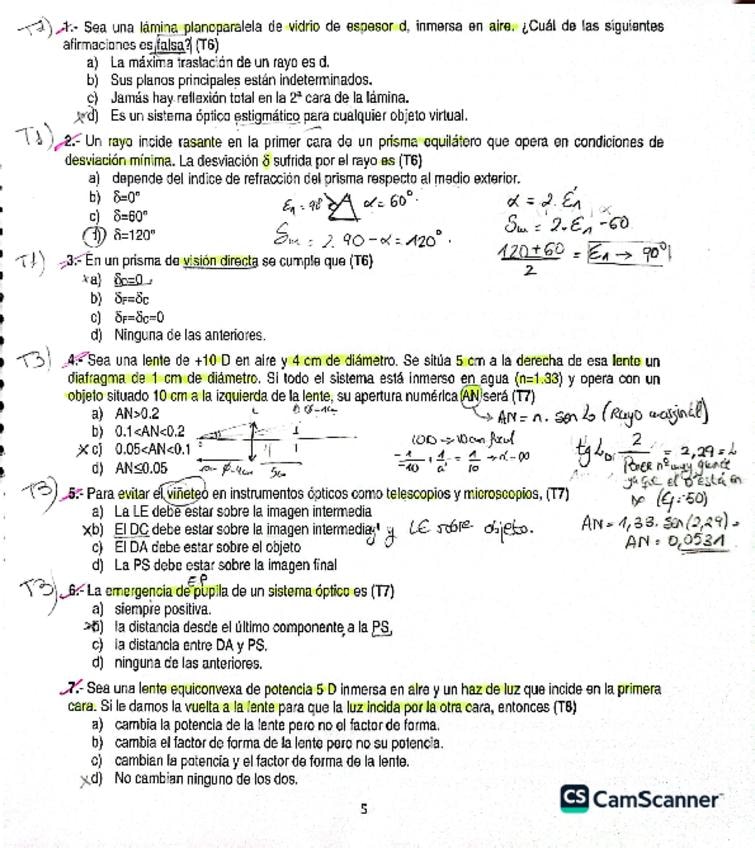 T2) 1.- Sea una lámina planoparalela de vidrio de espesor d, inmersa en aire. ¿Cuál de las siguientes
afirmaciones es falsa? (T6)
a) La máxima traslación de un rayo es d.
b) Sus planos principales están indeterminados.
c) Jamás hay reflexión total en la 2ª cara de la lámina.
xd) Es un sistema óptico estigmático para cualquier objeto virtual.
T1) 2.- Un rayo incide rasante en la primer cara de un prisma equilátero que opera en condiciones de
desviación mínima. La desviación δ sufrida por el rayo es (T6)
a) depende del indice de refracción del prisma respecto al medio exterior.
b) δ=0°
c) δ=60°
d) δ=120°
α = 60°.
δm = 2.90 - α = 120°.
α = 2.ε1'
δm = 2.ε1 - 60
120+60
2
= ε1 → 90°
T1) 3.- En un prisma de visión directa se cumple que (T6)
xa) δD=0
b) δF=δC
c) δF=δC=0
d) Ninguna de las anteriores.
T3) 4.- Sea una lente de +10 D en aire y 4 cm de diámetro. Se sitúa 5 cm a la derecha de esa lente un
diafragma de 1 cm de diámetro. Si todo el sistema está inmerso en agua (n=1.33) y opera con un
objeto situado 10 cm a la izquierda de la lente, su apertura numérica (AN) será (T7)
a) AN>0.2
b) 0.1<AN<0.2
xc) 0.05<AN<0.1
d) AN≤0.05
→ AN = n. sen (Rayo marginal)
10D → 10cm focal
= 2,29 =
Poner nº muy grande
ya que el está en
∞ (Ej: 50)
AN = 1,33. sen(2,29) =
AN = 0,0531
T3) 5.- Para evitar el viñeteo en instrumentos ópticos como telescopios y microscopios, (T7)
a) La LE debe estar sobre la imagen intermedia
xb) El DC debe estar sobre la imagen intermedia y LE sobre objeto.
c) El DA debe estar sobre el objeto
d) La PS debe estar sobre la imagen final
EP
T3) 6.- La emergencia de pupila de un sistema óptico es (T7)
a) siempre positiva.
xb) la distancia desde el último componente a la PS.
c) la distancia entre DA y PS.
d) ninguna de las anteriores.
7.- Sea una lente equiconvexa de potencia 5 D inmersa en aire y un haz de luz que incide en la primera
cara. Si le damos la vuelta a la lente para que la luz incida por la otra cara, entonces (T8)
a) cambia la potencia de la lente pero no el factor de forma.
b) cambia el factor de forma de la lente pero no su potencia.
c) cambian la potencia y el factor de forma de la lente.
xd) No cambian ninguno de los dos.
5
CS CamScanner